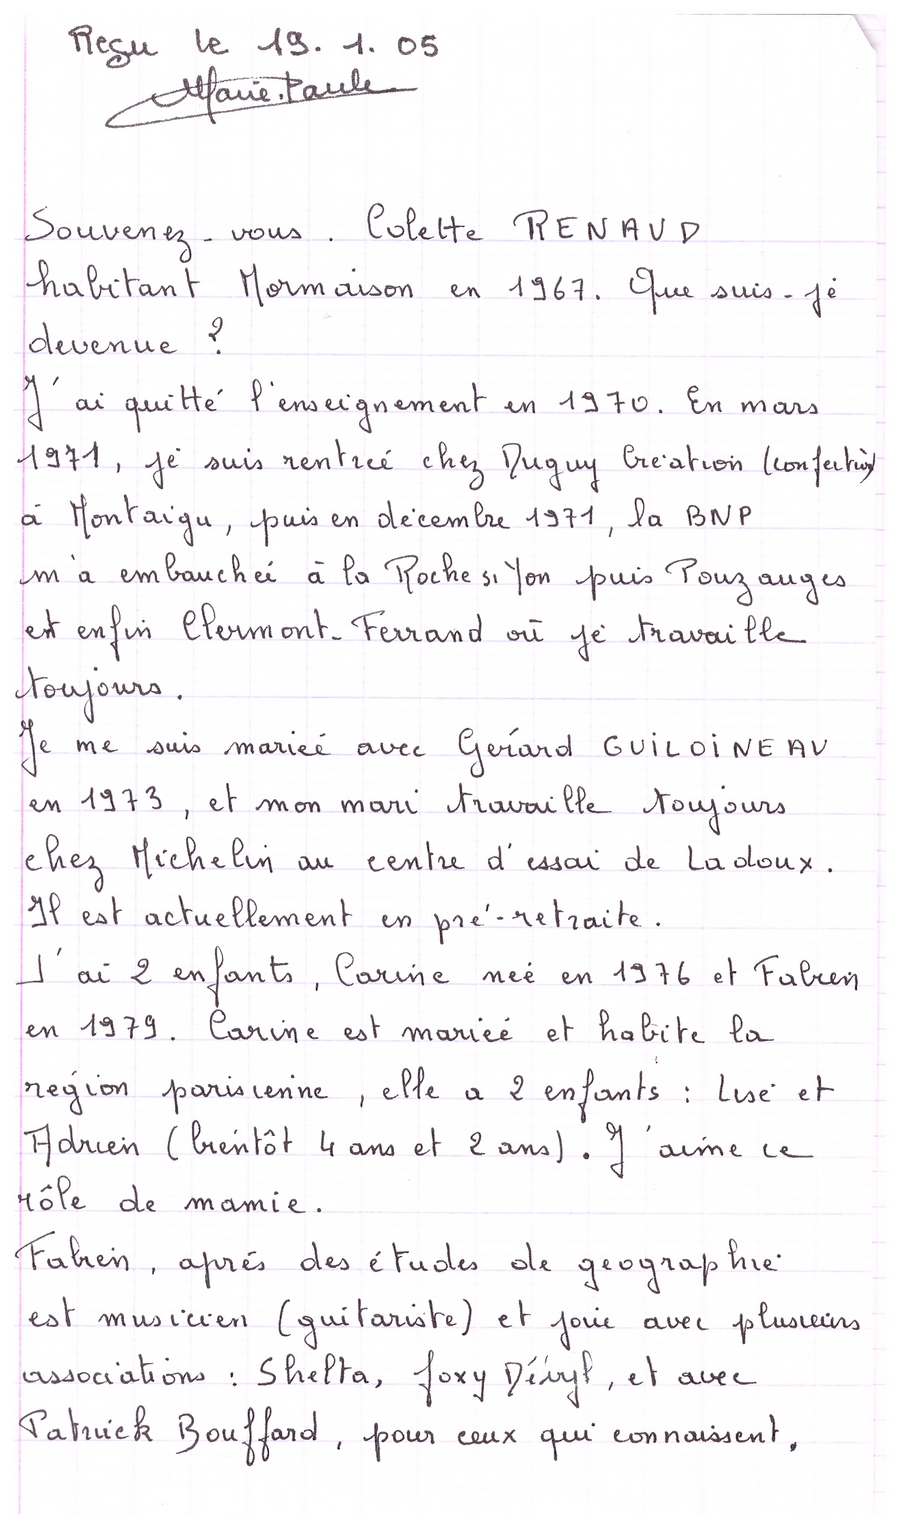 Reçu le 19. 1. 05
Marie-Paule
Souvenez-vous. Colette RENAUD
habitant Mormaison en 1967. Que suis-je
devenue ?
J'ai quitté l'enseignement en 1970. En mars
1971, je suis rentrée chez Duguy Création (confection)
à Montaigu, puis en décembre 1971, la BNP
m'a embauchée à la Roche s/Yon puis Pouzauges
et enfin Clermont-Ferrand où je travaille
toujours.
Je me suis mariée avec Gérard GUILOINEAU
en 1973, et mon mari travaille toujours
chez Michelin au centre d'essai de Ladoux.
Il est actuellement en pré-retraite.
J'ai 2 enfants, Carine née en 1976 et Fabien
en 1979. Carine est mariée et habite la
région parisienne, elle a 2 enfants : Lise et
Adrien (bientôt 4 ans et 2 ans). J'aime ce
rôle de mamie.
Fabien, après des études de géographie
est musicien (guitariste) et joue avec plusieurs
associations : Shelta, foxy, et avec
Patrick Bouffard, pour ceux qui connaissent.